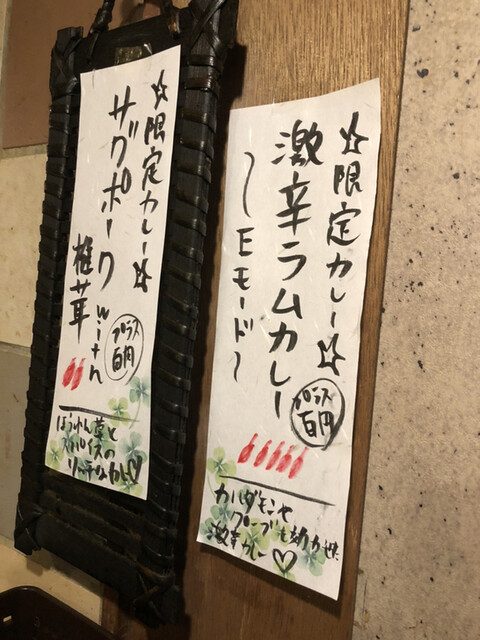 ☆限定カレー☆
激辛ラムカレー
〜Eモード〜
プラス
百円
カルダモンや
クローブも効かせた
激辛カレー♡
☆限定カレー☆
ザクポークwith
椎茸
プラス
百円
ほうれん草と
スパイスの